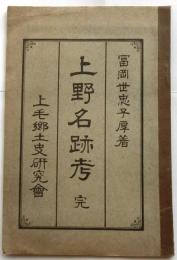 富岡世忠子厚著
上野名跡考 完
上毛郷土史研究會